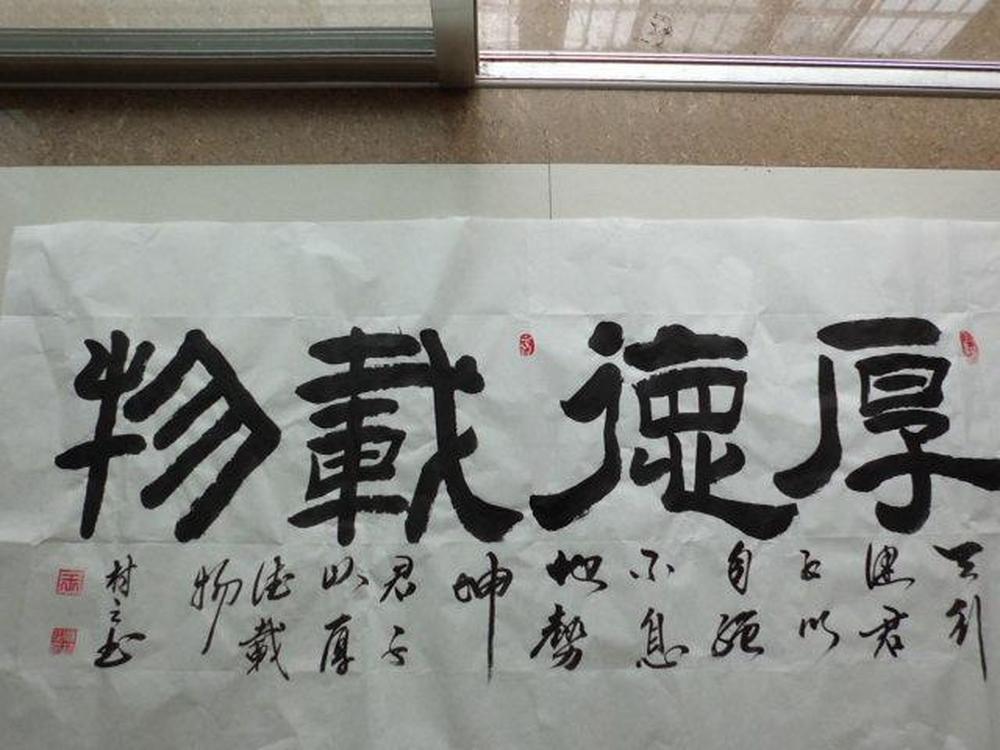 厚德載物
天行
健君
子以
自强
不息
地勢
坤
君子
以厚
德載
物
村之书